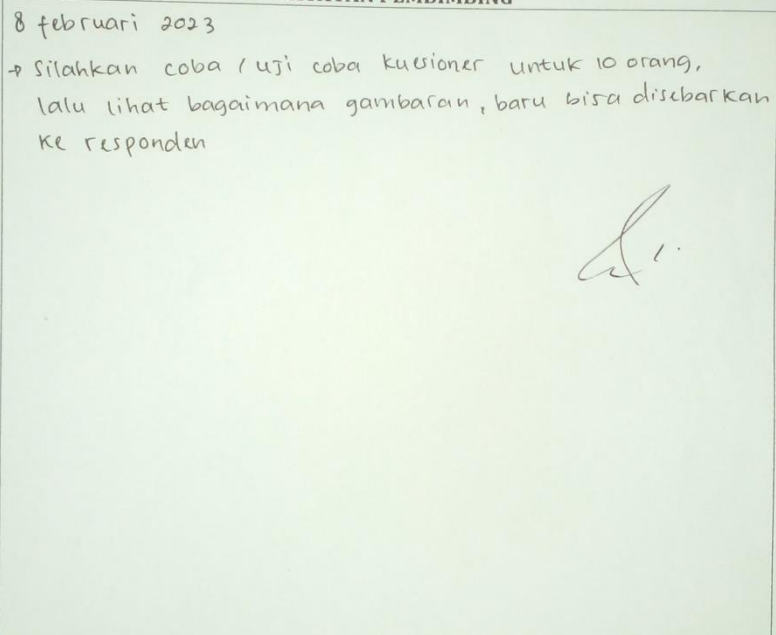 8 februari 2023
→ Silahkan coba / uji coba kuesioner untuk 10 orang,
lalu lihat bagaimana gambaran, baru bisa disebarkan
ke responden